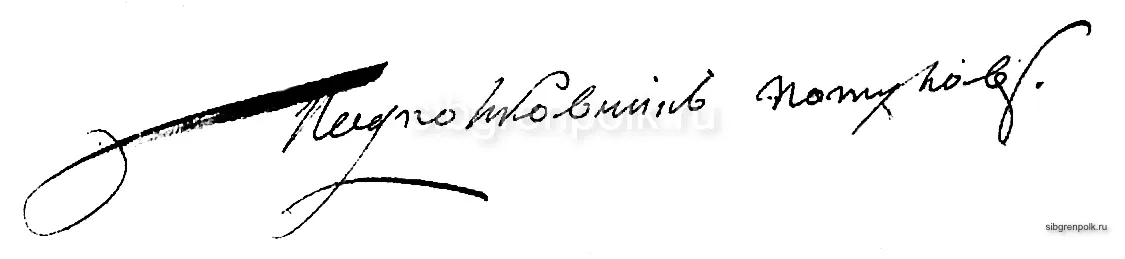 Подполковникъ Потуловъ.
sibgrenpolk.ru
sibgrenpolk.ru